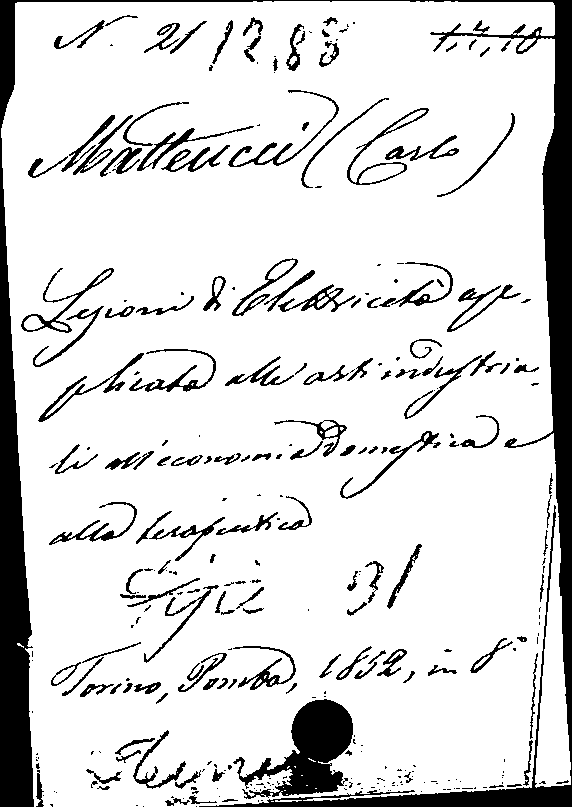 N. 21 12.88 1,7,10
Matteucci (Carlo)
Lezioni di Elettricità ap-
plicata alle arti industria-
li all'economia domestica e
alla terapeutica
31
Torino, Pomba, 1852, in 8º